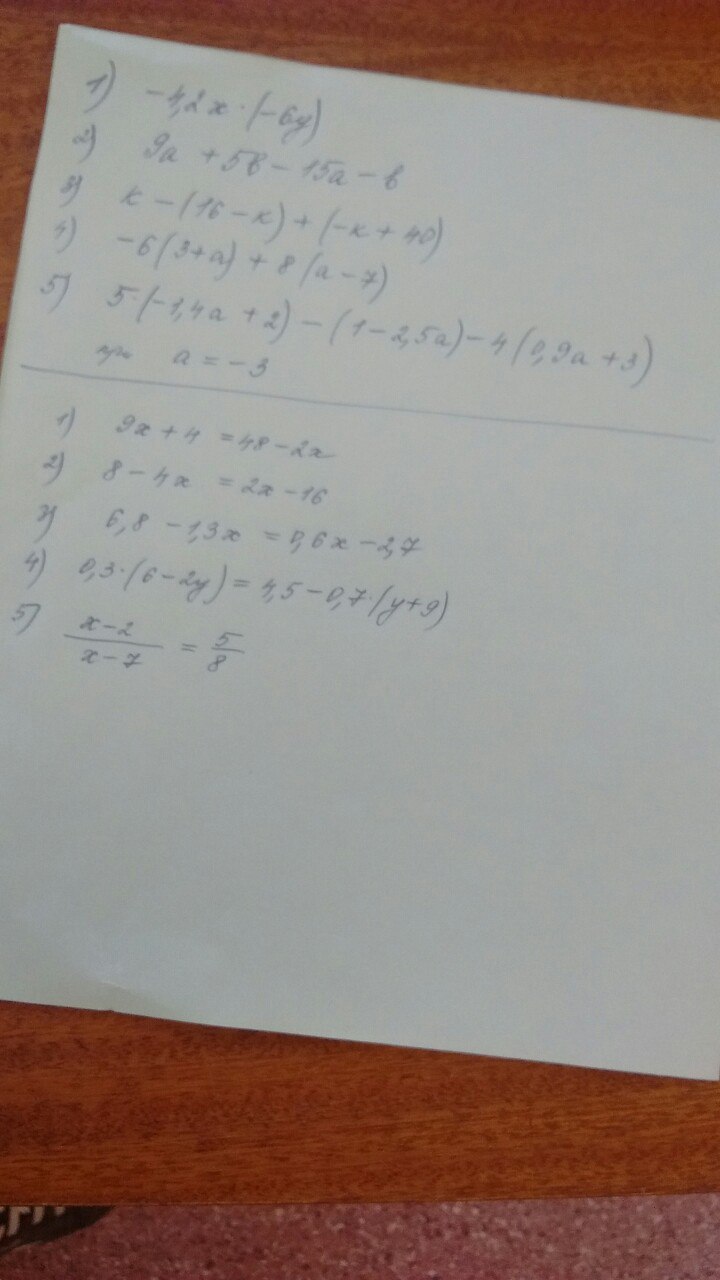 1) -4,2x·(-6y)
2) 9a + 5b - 15a - b
3) к - (16 - к) + (-к + 40)
4) -6(3+a) + 8(a-7)
5) 5·(-1,4a + 2) - (1 - 2,5a) - 4(0,9a + 3)
при a = -3
1) 9x + 4 = 48 - 2x
2) 8 - 4x = 2x - 16
3) 6,8 - 1,3x = 0,6x - 2,7
4) 0,3·(6 - 2y) = 4,5 - 0,7·(y+9)
5) x-2 / x-7 = 5/8